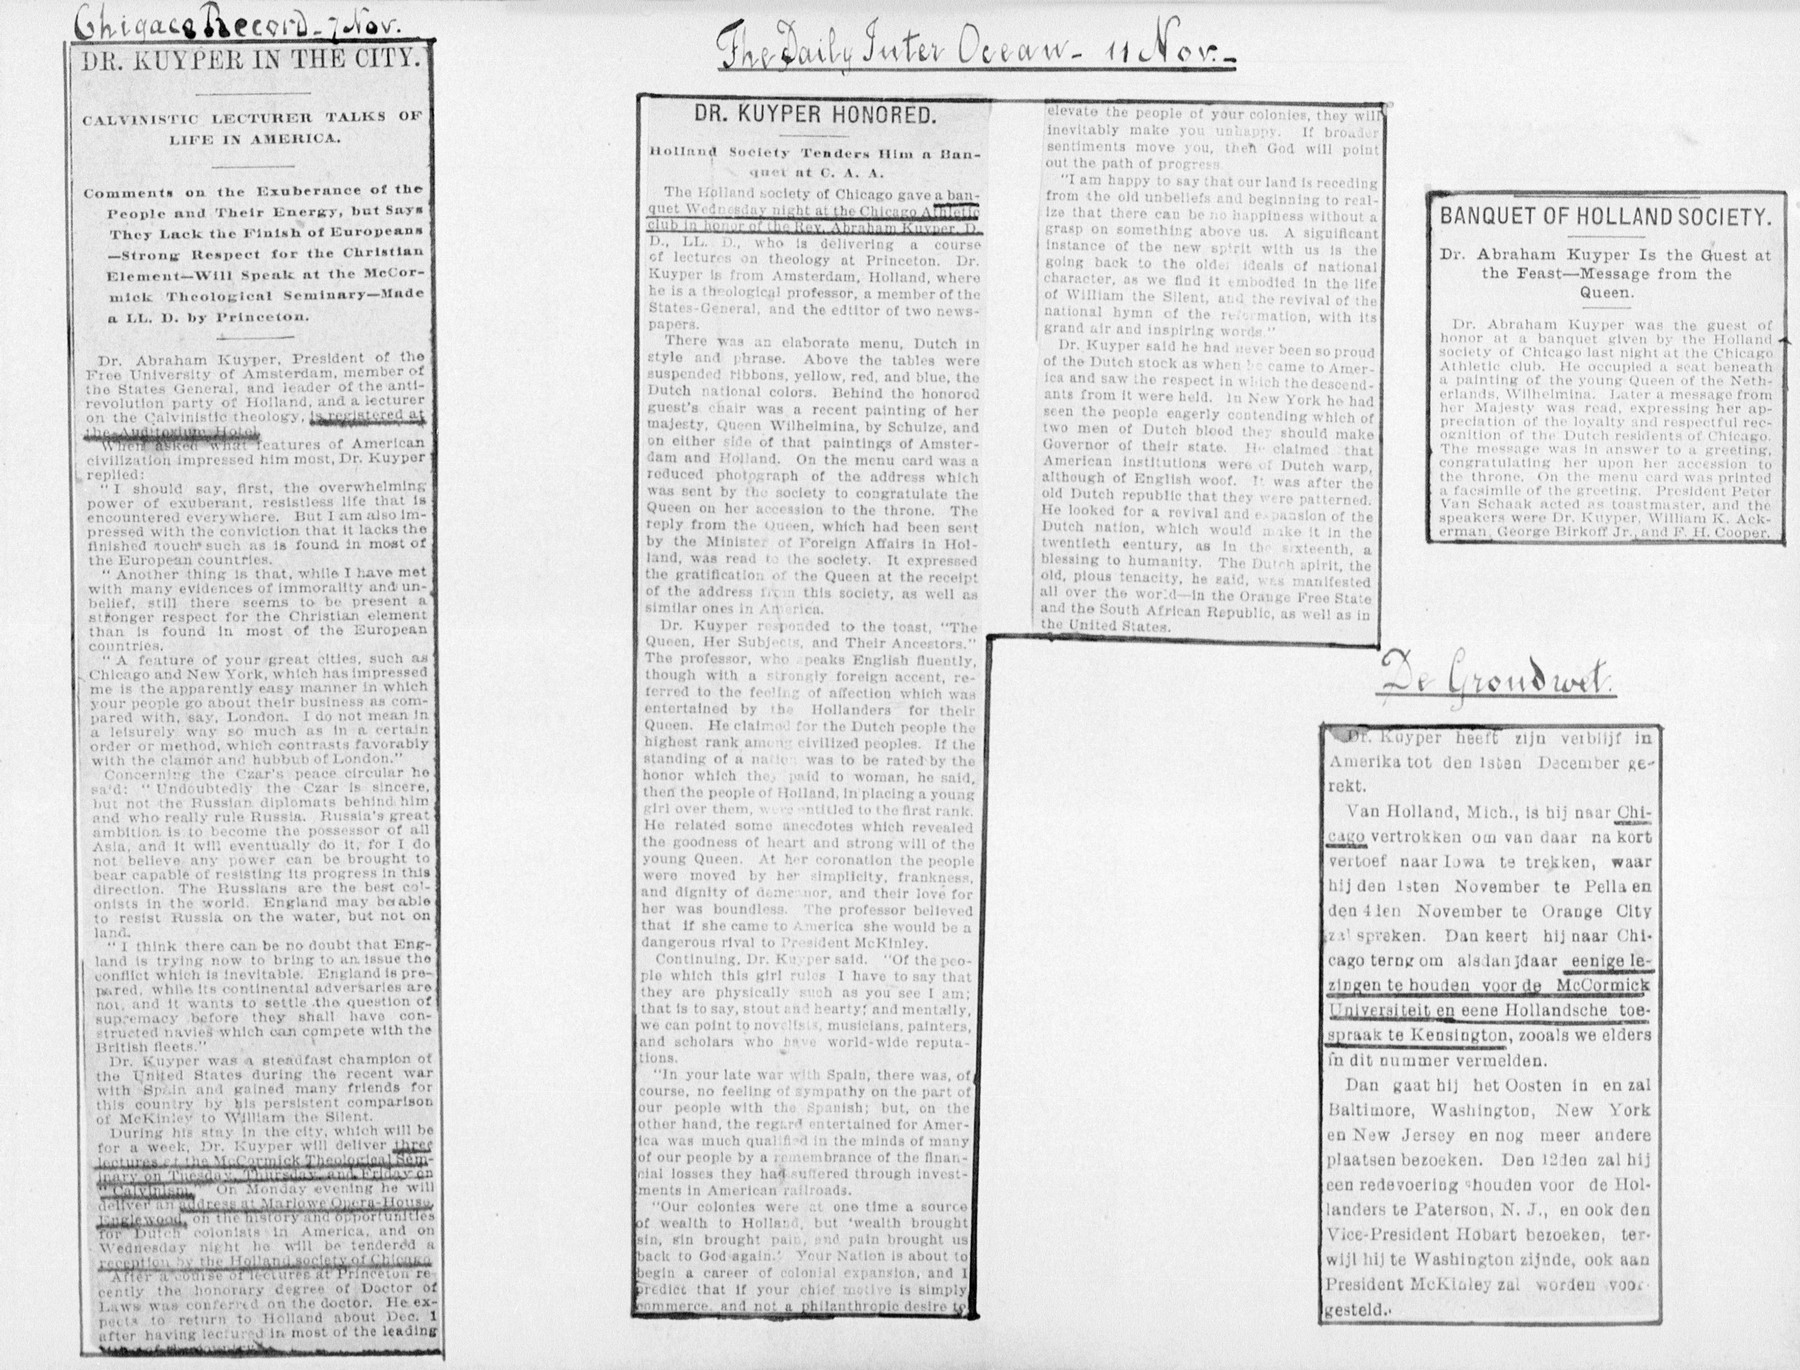 Chigaco Record - 7 Nov.
DR. KUYPER IN THE CITY.
CALVINISTIC LECTURER TALKS OF
LIFE IN AMERICA.
Comments on the Exuberance of the
People and Their Energy, but Says
They Lack the Finish of Europeans
—Strong Respect for the Christian
Element—Will Speak at the McCor-
mick Theological Seminary—Made
a LL. D. by Princeton.
Dr. Abraham Kuyper, President of the
Free University of Amsterdam, member of
the States General, and leader of the anti-
revolution party of Holland, and a lecturer
on the Calvinistic theology, is registered at
the Auditorium Hotel.
When asked what features of American
civilization impressed him most, Dr. Kuyper
replied:
"I should say, first, the overwhelming
power of exuberant, resistless life that is
encountered everywhere. But I am also im-
pressed with the conviction that it lacks the
finished touch such as is found in most of
the European countries.
"Another thing is that, while I have met
with many evidences of immorality and un-
belief, still there seems to be present a
stronger respect for the Christian element
than is found in most of the European
countries.
"A feature of your great cities, such as
Chicago and New York, which has impressed
me is the apparently easy manner in which
your people go about their business as com-
pared with, say, London. I do not mean in
a leisurely way so much as in a certain
order or method, which contrasts favorably
with the clamor and hubbub of London."
Concerning the Czar's peace circular he
said: "Undoubtedly the Czar is sincere,
but not the Russian diplomats behind him
and who really rule Russia. Russia's great
ambition is to become the possessor of all
Asia, and it will eventually do it, for I do
not believe any power can be brought to
bear capable of resisting its progress in this
direction. The Russians are the best col-
onists in the world. England may be able
to resist Russia on the water, but not on
land.
"I think there can be no doubt that Eng-
land is trying now to bring to an issue the
conflict which is inevitable. England is pre-
pared, while its continental adversaries are
not, and it wants to settle the question of
supremacy before they shall have con-
structed navies which can compete with the
British fleets."
Dr. Kuyper was a steadfast champion of
the United States during the recent war
with Spain and gained many friends for
this country by his persistent comparison
of McKinley to William the Silent.
During his stay in the city, which will be
for a week, Dr. Kuyper will deliver three
lectures at the McCormick Theological Sem-
inary on Tuesday, Thursday, and Friday on
"Calvinism." On Monday evening he will
deliver an address at Marlowe Opera-House,
Englewood, on the history and opportunities
for Dutch colonists in America, and on
Wednesday night he will be tendered a
reception by the Holland society of Chicago.
After a course of lectures at Princeton re-
cently the honorary degree of Doctor of
Laws was conferred on the doctor. He ex-
pects to return to Holland about Dec. 1
after having lectured in most of the leading
The Daily Inter Ocean - 11 Nov. -
DR. KUYPER HONORED.
Holland Society Tenders Him a Ban-
quet at C. A. A.
The Holland society of Chicago gave a ban-
quet Wednesday night at the Chicago Athletic
club in honor of the Rev. Abraham Kuyper, D.
D., LL. D., who is delivering a course
of lectures on theology at Princeton. Dr.
Kuyper is from Amsterdam, Holland, where
he is a theological professor, a member of the
States-General, and the edtitor of two news-
papers.
There was an elaborate menu, Dutch in
style and phrase. Above the tables were
suspended ribbons, yellow, red, and blue, the
Dutch national colors. Behind the honored
guest's chair was a recent painting of her
majesty, Queen Wilhelmina, by Schulze, and
on either side of that paintings of Amster-
dam and Holland. On the menu card was a
reduced photograph of the address which
was sent by the society to congratulate the
Queen on her accession to the throne. The
reply from the Queen, which had been sent
by the Minister of Foreign Affairs in Hol-
land, was read to the society. It expressed
the gratification of the Queen at the receipt
of the address from this society, as well as
similar ones in America.
Dr. Kuyper responded to the toast, "The
Queen, Her Subjects, and Their Ancestors."
The professor, who speaks English fluently,
though with a strongly foreign accent, re-
ferred to the feeling of affection which was
entertained by the Hollanders for their
Queen. He claimed for the Dutch people the
highest rank among civilized peoples. If the
standing of a nation was to be rated by the
honor which they paid to woman, he said,
then the people of Holland, in placing a young
girl over them, were entitled to the first rank.
He related some anecdotes which revealed
the goodness of heart and strong will of the
young Queen. At her coronation the people
were moved by her simplicity, frankness,
and dignity of demeanor, and their love for
her was boundless. The professor believed
that if she came to America she would be a
dangerous rival to President McKinley.
Continuing, Dr. Kuyper said. "Of the peo-
ple which this girl rules I have to say that
they are physically such as you see I am;
that is to say, stout and hearty; and mentally,
we can point to novelists, musicians, painters,
and scholars who have world-wide reputa-
tions.
"In your late war with Spain, there was, of
course, no feeling of sympathy on the part of
our people with the Spanish; but, on the
other hand, the regard entertained for Amer-
ica was much qualified in the minds of many
of our people by a remembrance of the finan-
cial losses they had suffered through invest-
ments in American railroads.
"Our colonies were at one time a source
of wealth to Holland, but 'wealth brought
sin, sin brought pain, and pain brought us
back to God again.' Your Nation is about to
begin a career of colonial expansion, and I
predict that if your chief motive is simply
commerce, and not a philanthropic desire to
elevate the people of your colonies, they will
inevitably make you unhappy. If broader
sentiments move you, then God will point
out the path of progress.
"I am happy to say that our land is receding
from the old unbeliefs and beginning to real-
ize that there can be no happiness without a
grasp on something above us. A significant
instance of the new spirit with us is the
going back to the older ideals of national
character, as we find it embodied in the life
of William the Silent, and the revival of the
national hymn of the reformation, with its
grand air and inspiring words."
Dr. Kuyper said he had never been so proud
of the Dutch stock as when he came to Amer-
ica and saw the respect in which the descend-
ants from it were held. In New York he had
seen the people eagerly contending which of
two men of Dutch blood they should make
Governor of their state. He claimed that
American institutions were of Dutch warp,
although of English woof. It was after the
old Dutch republic that they were patterned.
He looked for a revival and expansion of the
Dutch nation, which would make it in the
twentieth century, as in the sixteenth, a
blessing to humanity. The Dutch spirit, the
old, pious tenacity, he said, was manifested
all over the world—in the Orange Free State
and the South African Republic, as well as in
the United States.
BANQUET OF HOLLAND SOCIETY.
Dr. Abraham Kuyper Is the Guest at
the Feast—Message from the
Queen.
Dr. Abraham Kuyper was the guest of
honor at a banquet given by the Holland
society of Chicago last night at the Chicago
Athletic club. He occupied a seat beneath
a painting of the young Queen of the Neth-
erlands, Wilhelmina. Later a message from
her Majesty was read, expressing her ap-
preciation of the loyalty and respectful rec-
ognition of the Dutch residents of Chicago.
The message was in answer to a greeting,
congratulating her upon her accession to
the throne. On the menu card was printed
a facsimile of the greeting. President Peter
Van Schaak acted as toastmaster, and the
speakers were Dr. Kuyper, William K. Ack-
erman, George Birkoff Jr., and F. H. Cooper.
De Grondwet.
Dr. Kuyper heeft zijn verblijf in
Amerika tot den 1sten December ge-
rekt.
Van Holland, Mich., is hij naar Chi-
cago vertrokken om van daar na kort
vertoef naar Iowa te trekken, waar
hij den 1sten November te Pella en
den 4den November te Orange City
zal spreken. Dan keert hij naar Chi-
cago terng om alsdan daar eenige le-
zingen te houden voor de McCormick
Universiteit en eene Hollandsche toe-
spraak te Kensington, zooals we elders
in dit nummer vermelden.
Dan gaat hij het Oosten in en zal
Baltimore, Washington, New York
en New Jersey en nog meer andere
plaatsen bezoeken. Den 12den zal hij
een redevoering houden voor de Hol-
landers te Paterson, N. J., en ook den
Vice-President Hobart bezoeken, ter-
wijl hij te Washington zijnde, ook aan
President McKinley zal worden voor-
gesteld.